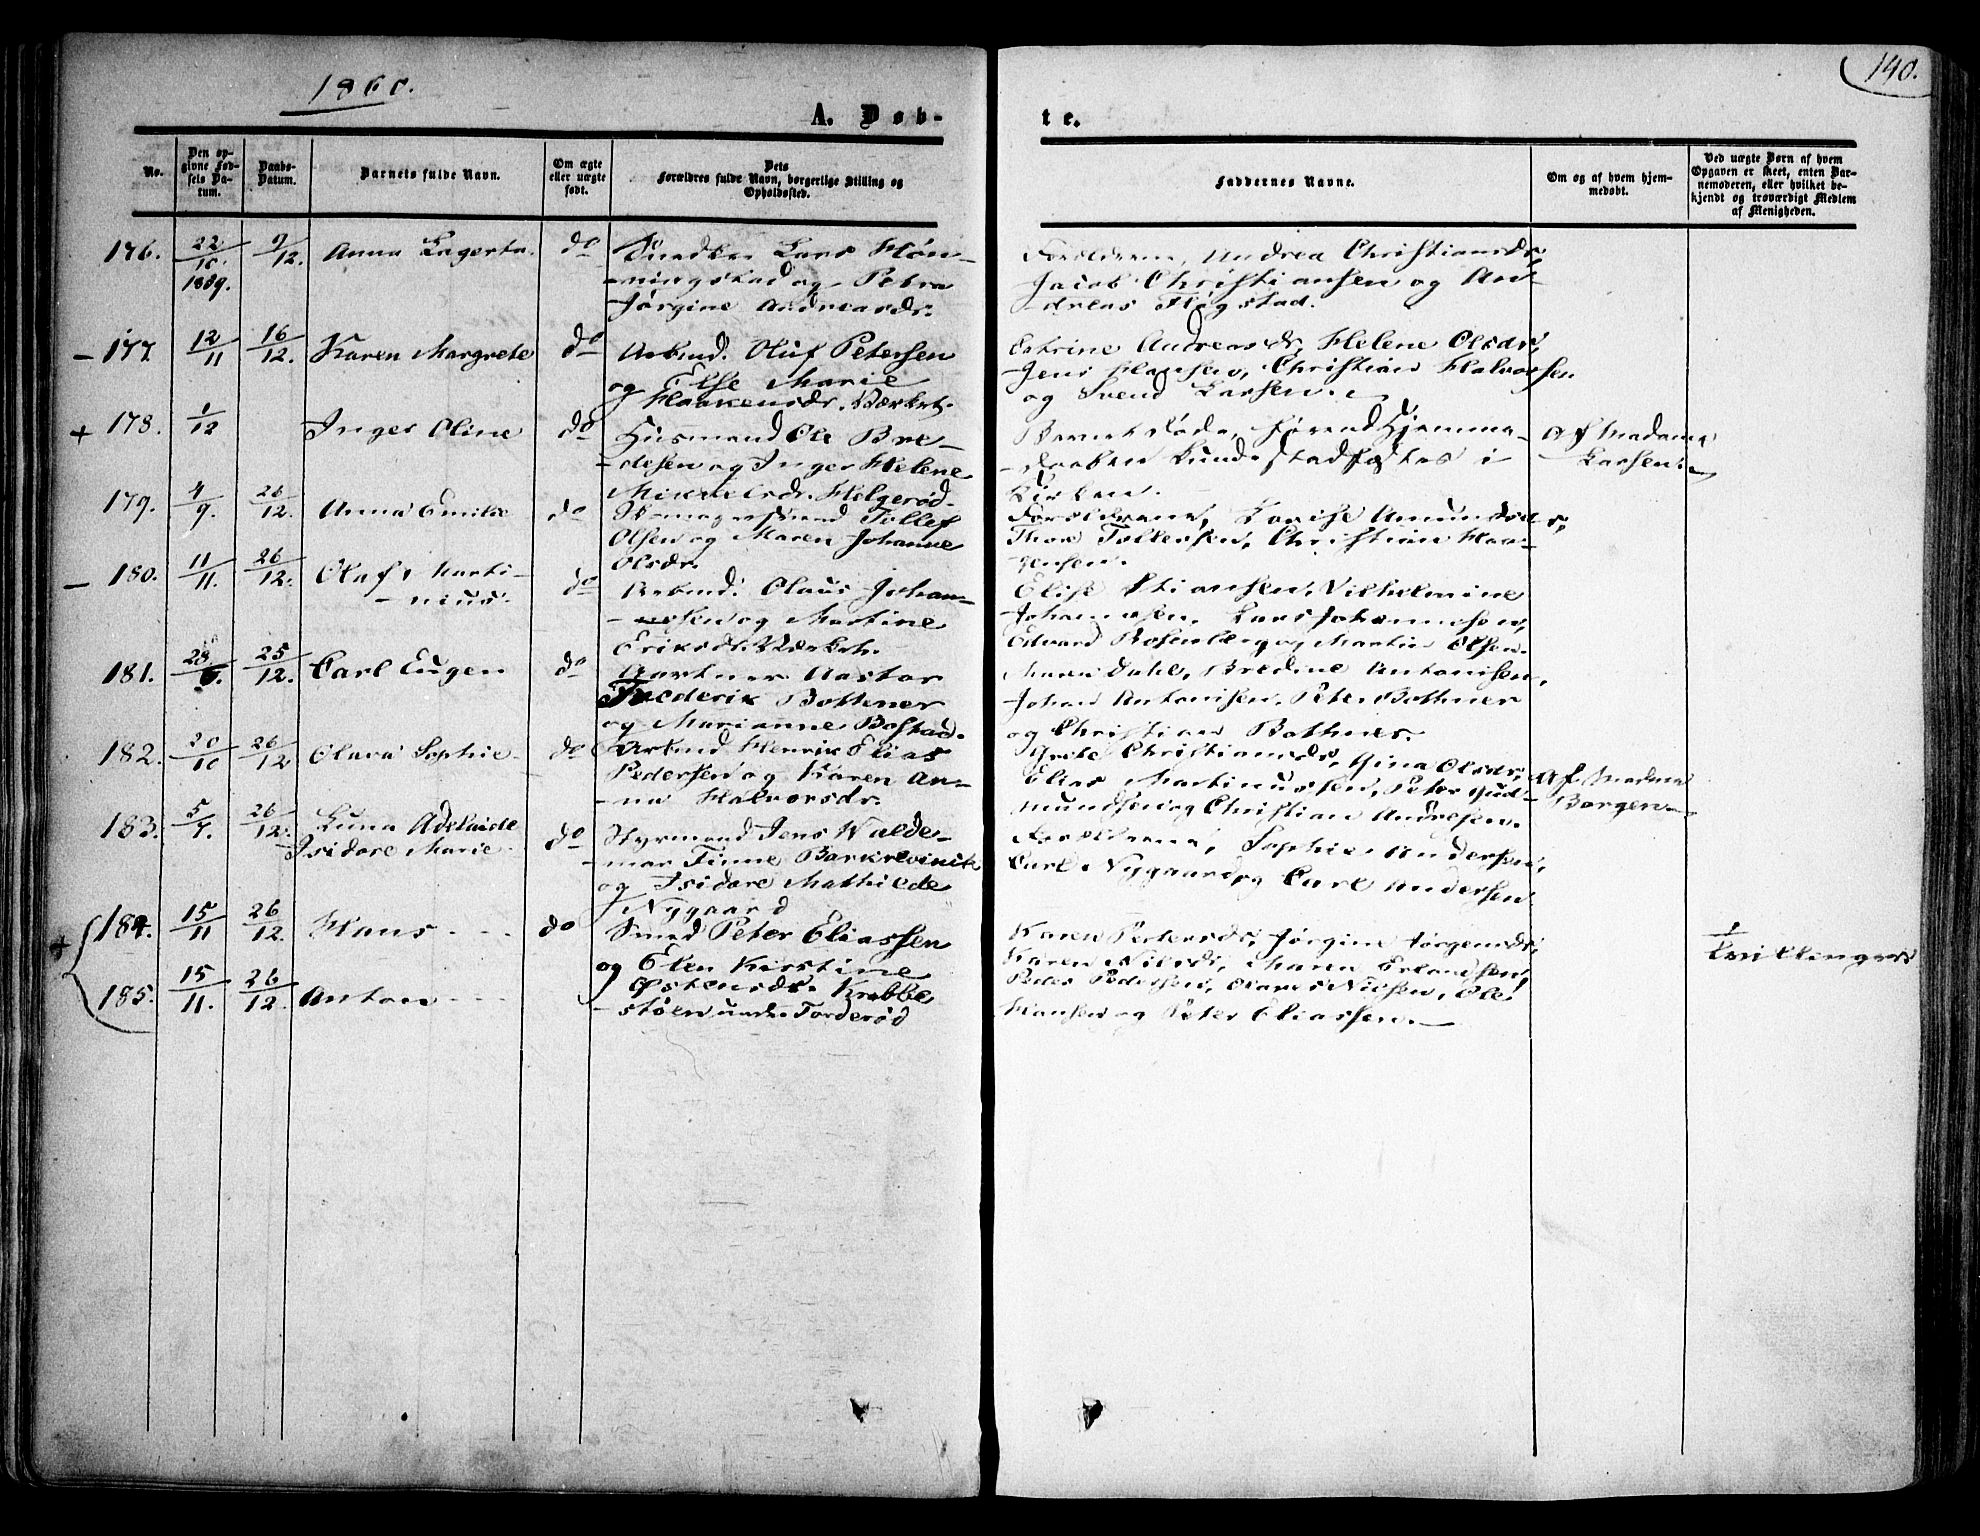 1860.
140.
A. Døb-
te.
No.
Den op-
givne Fød-
sels Da-
tum.
Daabs-
Datum.
Barnets fulde Navn.
Om ægte
eller uægte
født.
Dets
Forældres fulde Navn, borgerlige Stilling og
Opholdssted.
Faddernes Navne.
Om og af hvem hjem-
medøbt.
Ved uægte Børn af hvem
Opgaven er skeet, enten Bar-
nemoderen, eller hvilket be-
kjendt og troværdigt Medlem
af Menigheden.
176. 22/10 9/12. Anna Lagerta. do Lars Høn-
1859.
-ningstad og Petra
Jørgine Andreasdr.
Forældrene, Andrea Christiansdr,
Jacob Christiansen og An-
dreas Fløgstad.
- 177. 12/11 16/12. Karen Margrete do Arbmd. Oluf Petersen
og Else Marie
Haakensdr. Værket.
Andreasdr, Helene Olsdr,
Jens Hansen, Christian Halvorsen
og Svend Larsen.
+ 178. 1/12 Inger Oline do Husmand Ole Bre-
-desen og Inger Helene
Mikkelsdr. Helgerød.
Barnet døde, førend Hjemme-
-daaben kunde stadfæstes i
Kirken.
Af Madame
Larsen.
179. 4/9. 26/12. Anna Emilie do Tollef
Olsen og Maren Johanne
Olsdr.
Forældrene, Lovise Amundsdr,
Thor Tollefsen, Christian Haa-
-gensen.
- 180. 11/11. 26/12. Olaf Marti-
-nius.
do Arbmd. Olaus Johan-
-nesen og Martine
Eriksdr. Værket.
Elise Stiansen, Vilhelmine
Johannesen, Lars Johannesen,
Edvard Rosenberg og Martin Olsen.
181. 28/6. 25/12. Carl Eugen do Gartner Aastar
Frederik Bothner
og Marianne Bostad.
Maren Dahl, Bredine Antonisen,
Johan Antonisen, Peter Bothner
og Christian Bothner.
182. 20/10 26/12 Olava Sophie do Arbmd Henrik Elias
Pedersen og Karen An-
-na Halvorsdr.
Grete Christiansdr, Gina Olsdr,
Elias Martinussen, Peter Gud-
mundsen og Christian Andresen.
Af Madme
Borgersen
183. 5/7. 26/12. Luna Adelaide
Isidore Marie
do Styrmand Jens Walde-
-mar Finne Barkrevinik
og Isidore Mathilde
Nygaard
Forældrene, Sophie Andersen,
Carl Nygaard og Carl Andersen
+ 184. 15/11 26/12. Hans - - - do Smed Peter Eliassen
og Elen Kirstine
Østensdr. Krabbe
-støen under Torderød
185. 15/11. 26/12. Anton - - -
Karen Pedersdr, Jørgine Jørgensdr,
Karen Nilsdr, Maren Erlandsen,
Peder Pedersen, Olaves Nilsen, Ole
Hansen og Peter Eliassen.
Tvillinger